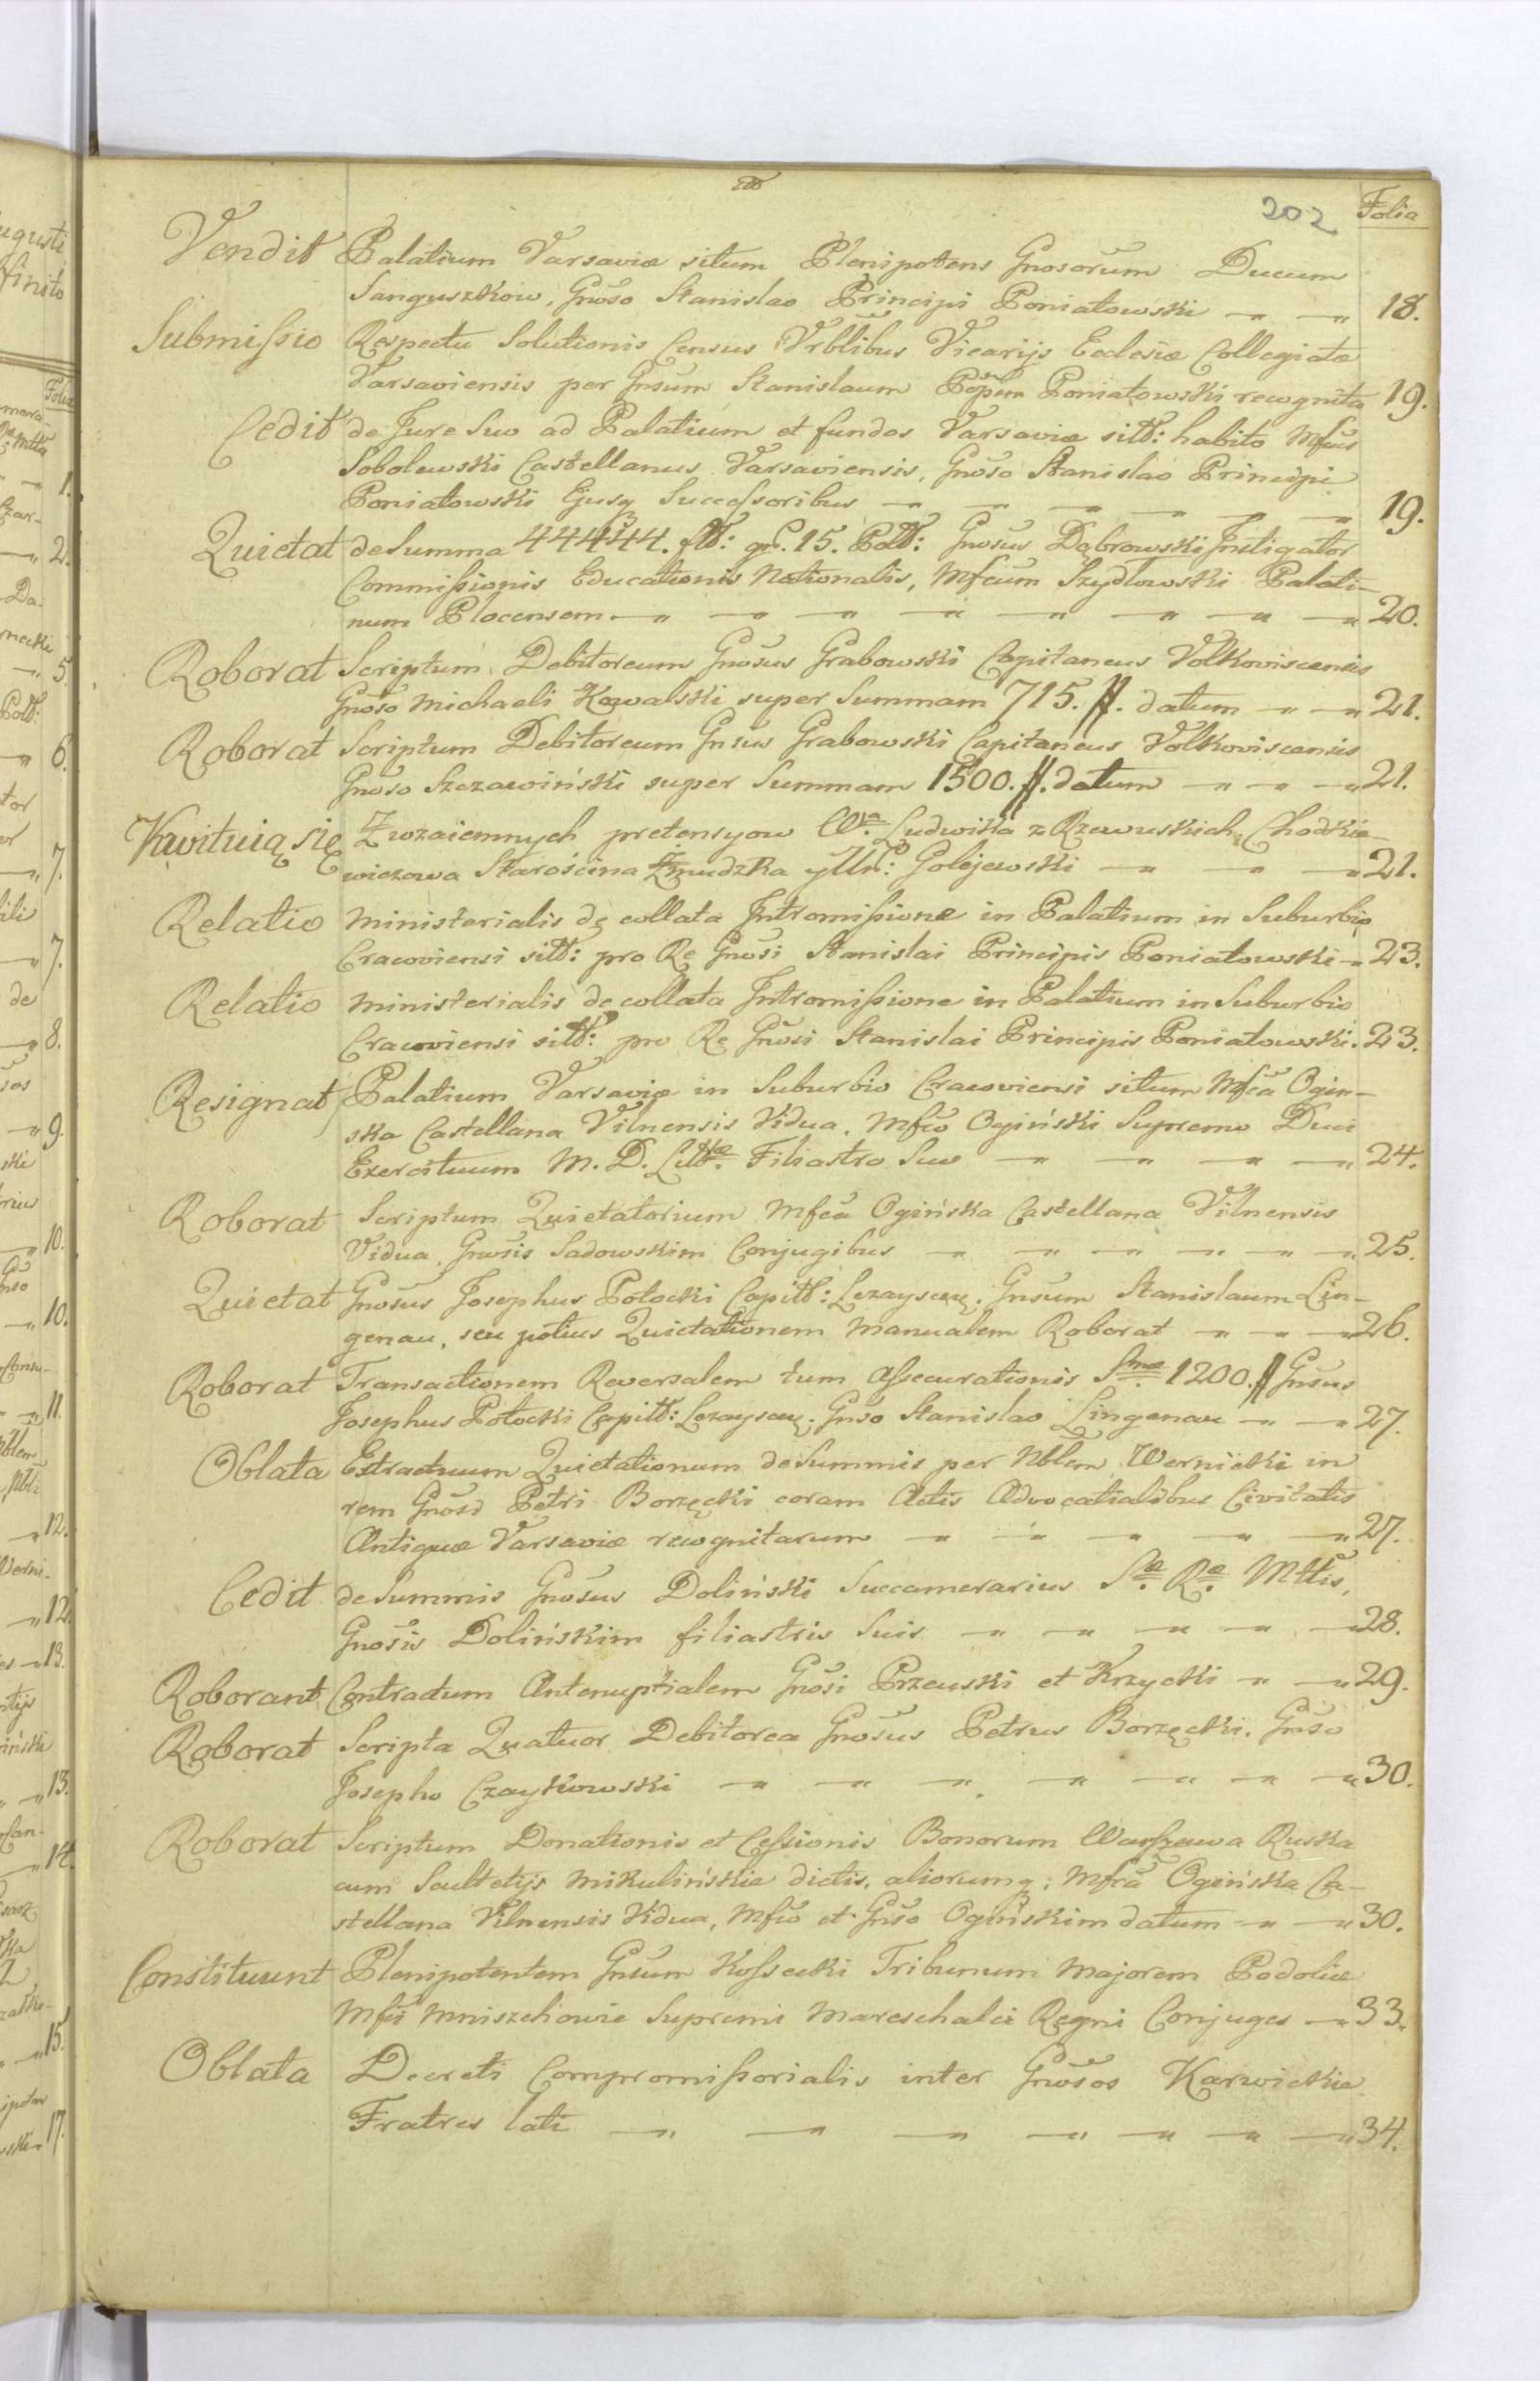 202 Folia
Vendit Palatium Varsaviæ situm Plenipotens Gnosorum Ducum
Sanguszkow, Gnoso Stanislao Principi Poniatowski 18.
Submissio Respectu Solutionis Census Vrblibus Vicarijs Eclesiæ Collegiatæ
Varsaviensis per Gnsum Stanislaum Pcpem Poniatowski recognita 19.
Cedit de Jure Suo ad Palatium et fundos Varsaviæ sitt: habito Mfcus
Sobolewski Castellanus Varsaviensis, Gnoso Stanislao Principi
Poniatowski Ejusq Successoribus 19.
Quietat de Summa 44444. ftt: gr. 15. Potl: Gnosus Dąbrowski Instigator
Commissionis Educationis Nationalis, Mfcum Szydlowski Palati-
num Plocensem 20.
Roborat Scriptum Debitoreum Gnosus Grabowski Capitaneus Volkoviscensis
Gnoso Michaeli Kowalski super Summam 715. #. datum 21.
Roborat Scriptum Debitoreum Gnsus Grabowski Capitaneus Volkoviscensis
Gnoso Szczawiński super Summam 1500. #. datum 21.
Kwituią się Z wzaiemnych pretensyow Wa. Ludwika z Rzewuskich Chodkie-
wiczowa Starościna Żmudzka y Ur: Golejewski 21.
Relatio Ministerialis de collata Intromissione in Palatium in Suburbio
Cracoviensi sitt: pro Re Gnosi Stanislai Principis Poniatowski 23.
Relatio Ministerialis de collata Intromissione in Palatium in Suburbio
Cracoviensi sitt: pro Re Gnosi Stanislai Principis Poniatowski. 23.
Resignat Palatium Varsaviæ in Suburbio Cracoviensi situm Mfca Ogin-
ska Castellana Vilnensis Vidua. Mfco Ogiński Supremo Duci
Exercituum M. D. Littæ. Filiastro Suo 24.
Roborat Scriptum Quietatorium Mfca Ogińska Castellana Vilnensis
Vidua. Gnosis Sadowskim Conjugibus 25.
Quietat Gnosus Josephus Potocki Capitt: Lezayscen. Gnsum Stanislaum Lin-
genau, seu potius Quietationem Manualem Roborat 26.
Roborat Transactionem Reversalem tum Assecurationis Smæ. 1200. # Gnsus
Josephus Potocki Capitt: Lezayscen. Gnso Stanislao Lingenau 27.
Oblata Extractuum Quietationum de Summis per Nblem Wernicki in
rem Gnosi Petri Borzęcki coram Actis Advocatialibus Civitatis
Antiquæ Varsaviæ recognitarum 27.
Cedit de Summis Gnosus Doliński Succamerarius Sæ. Ræ. Mttis,
Gnosis Dolińskim filiastris Suis 28.
Roborant Contractum Antenuptialem Gnosi Przeuski et Krzycki 29.
Roborat Scripta Quatuor Debitorea Gnosus Petrus Borzęcki. Gnso
Josepho Czaykowski 30.
Roborat Scriptum Donationis et Cessionis Bonorum Warszawa Ruska
cum Scultetijs Mikulińskie dictis, aliorumq; Mfca Ogińska Ca-
stellana Vilnensis Vidua, Mfco et Gnso Ogińskim datum 30.
Constituunt Plenipotentem Gnsum Kossecki Tribunum Majorem Podoliæ
Mfci Mniszchowie Supremi Mareschalci Regni Conjuges 33.
Oblata Decreti Compromissorialis inter Gnosos Karwickie
Fratres lati 34.